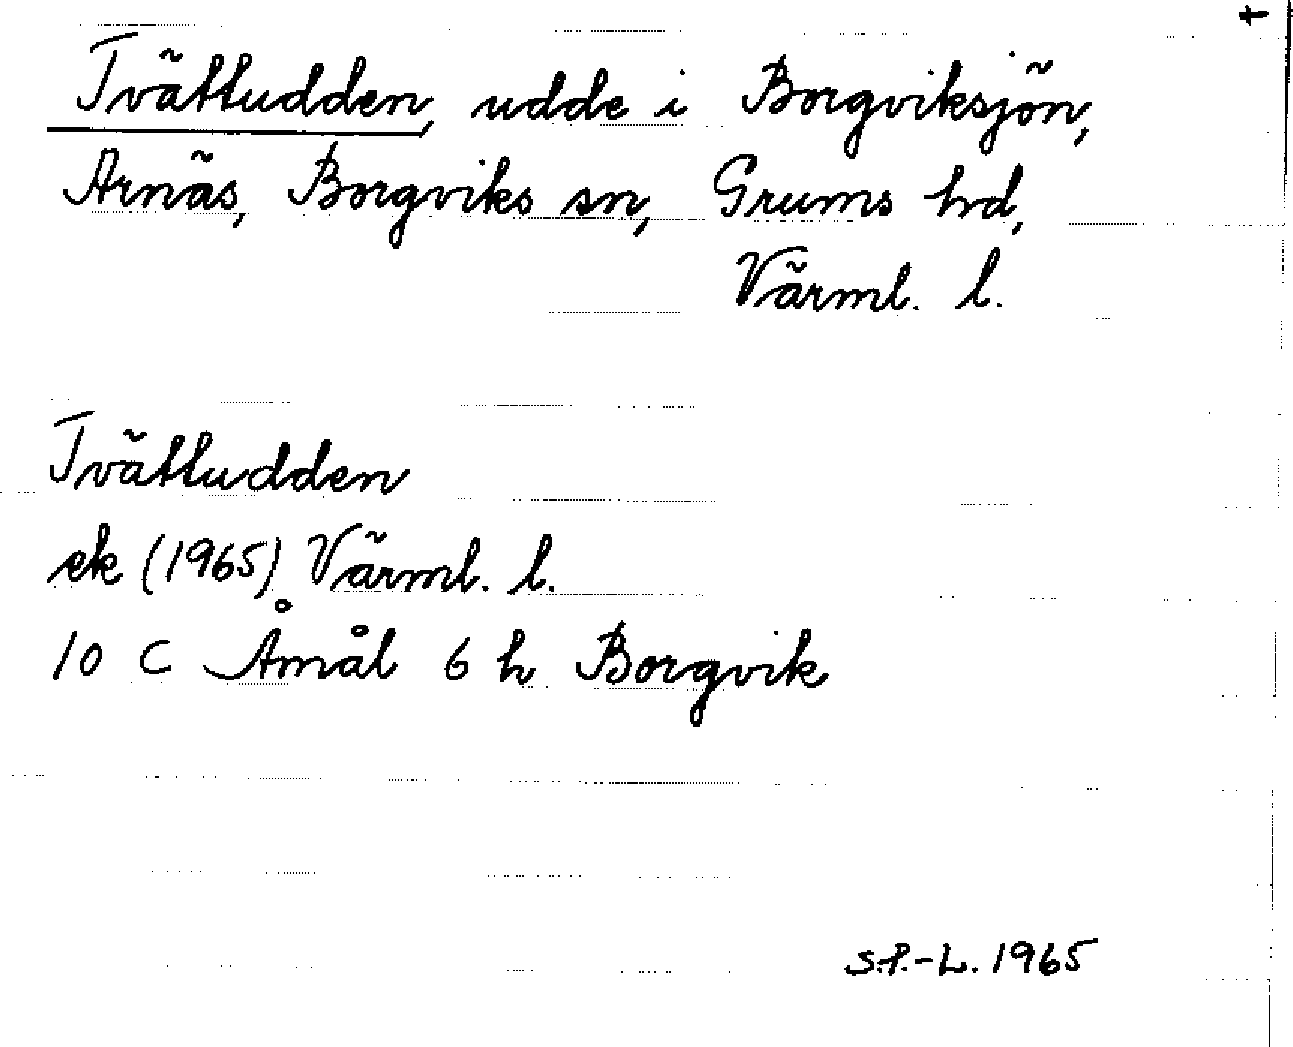 t
Tvättudden, udde i Borgviksjön,
Arnäs, Borgviks sn, Grums hd,
Värml. l.
Tvättudden
ek (1965) Värml. l.
10 C Åmål 6 h Borgvik
S.P.-L. 1965